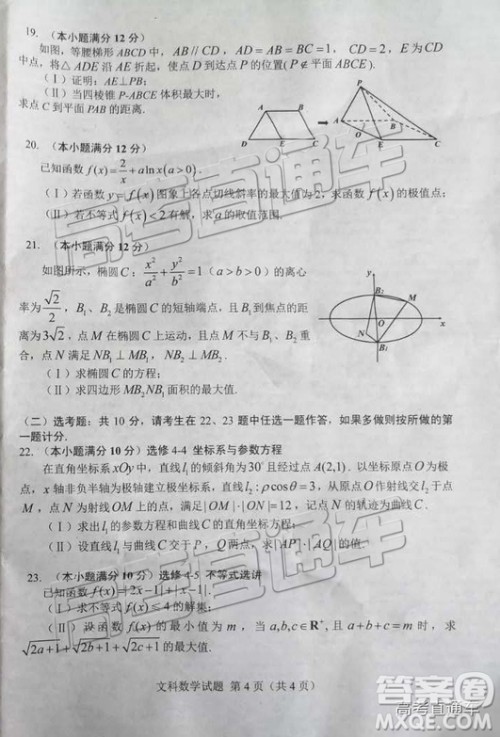 19. （本小题满分 12 分）
如图，等腰梯形 ABCD 中，AB//CD，AD=AB=BC=1，CD=2，E 为 CD
中点，将△ADE 沿 AE 折起，使点 D 到达点 P 的位置(P∉平面 ABCE).
（Ⅰ）证明：AE⊥PB；
（Ⅱ）当四棱锥 P-ABCE 体积最大时，
求点 C 到平面 PAB 的距离.
A B
D E C
P
A
O
B
E
C
20. （本小题满分 12 分）
已知函数 f(x)=2/x+a ln x(a>0).
（Ⅰ）若函数 y=f(x)图象上各点切线斜率的最大值为 2，求函数 f(x)的极值点；
（Ⅱ）若不等式 f(x)<2 有解，求 a 的取值范围.
21. （本小题满分 12 分）
如图所示，椭圆 C：x²/a²+y²/b²=1（a>b>0）的离心
率为√2/2，B₁、B₂ 是椭圆 C 的短轴端点，且 B₁ 到焦点的距
离为 3√2，点 M 在椭圆 C 上运动，且点 M 不与 B₁、B₂ 重
合，点 N 满足 NB₁⊥MB₁，NB₂⊥MB₂.
（Ⅰ）求椭圆 C 的方程；
（Ⅱ）求四边形 MB₂NB₁ 面积的最大值.
y
B₂
M
O
x
N
B₁
（二）选考题：共 10 分，请考生在 22、23 题中任选一题作答，如果多做则按所做的第
一题计分.
22. （本小题满分 10 分）选修 4-4 坐标系与参数方程
在直角坐标系 xOy 中，直线 l₁ 的倾斜角为 30°且经过点 A(2,1). 以坐标原点 O 为极
点，x 轴非负半轴为极轴建立极坐标系，直线 l₂：ρcosθ=3，从原点 O 作射线交 l₂ 于点
M，点 N 为射线 OM 上的点，满足|OM|·|ON|=12，记点 N 的轨迹为曲线 C.
（Ⅰ）求出 l₁ 的参数方程和曲线 C 的直角坐标方程；
（Ⅱ）设直线 l₁ 与曲线 C 交于 P，Q 两点，求|AP|·|AQ|的值.
23. （本小题满分 10 分）选修 4-5 不等式选讲
已知函数 f(x)=|2x-1|+|x-1|.
（Ⅰ）求不等式 f(x)≤4 的解集；
（Ⅱ）设函数 f(x) 的最小值为 m，当 a,b,c∈R⁺，且 a+b+c=m 时，求
√2a+1+√2b+1+√2c+1 的最大值.
文科数学试题 第 4 页（共 4 页）
高考直通车
高考直通车
答案卷
高考直通车
MXQE.COM